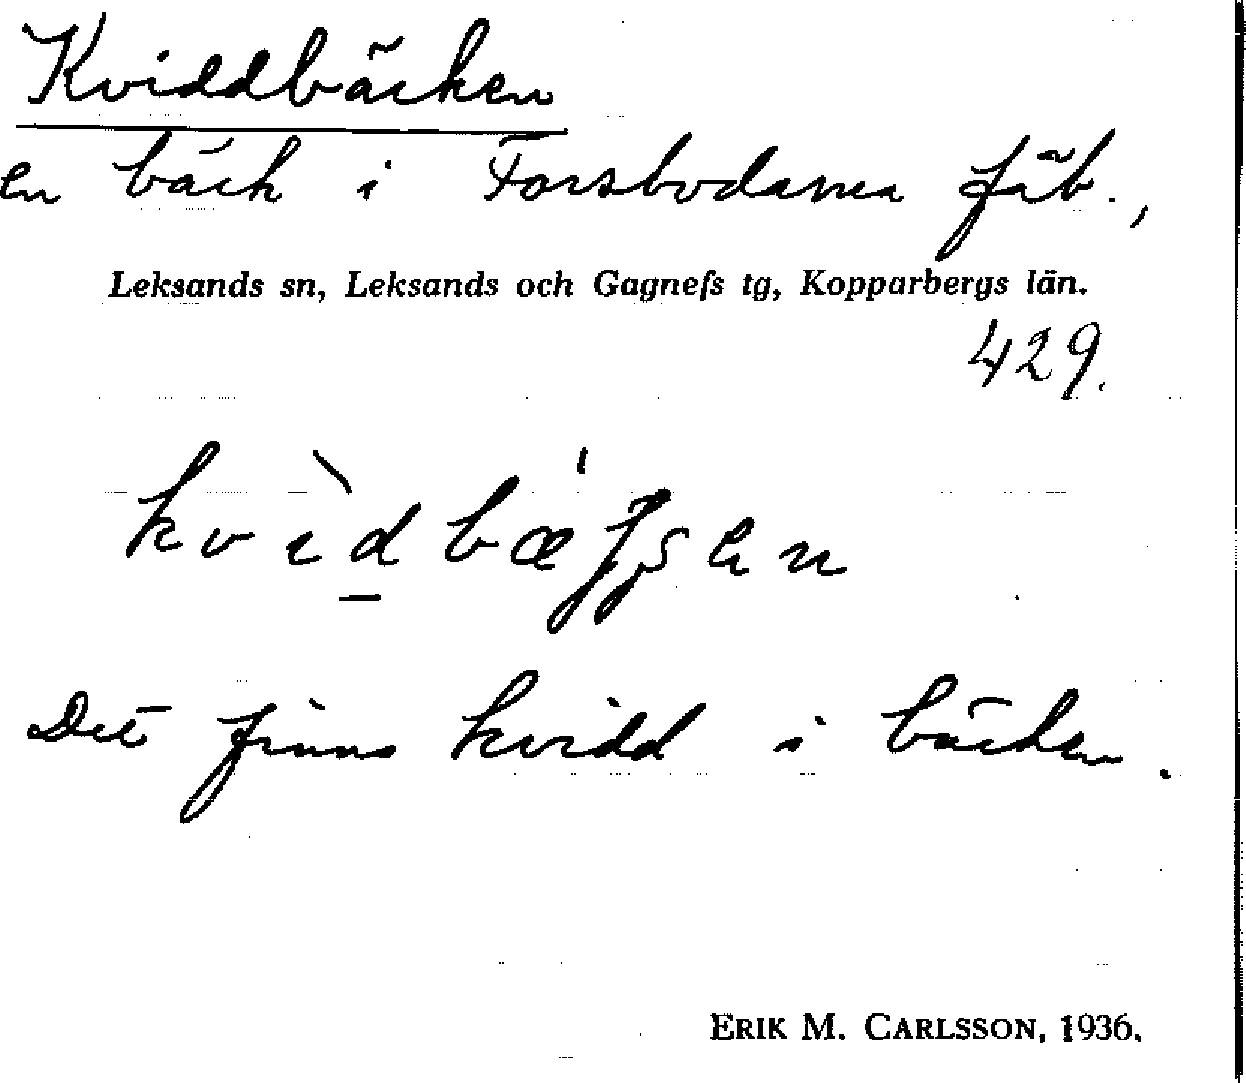 Kviddbäcken
en bäck i Forsbodarna fäb.,
Leksands sn, Leksands och Gagnefs tg, Kopparbergs län.
429.
Det finns kvidd i bäcken.
ERIK M. CARLSSON, 1936.